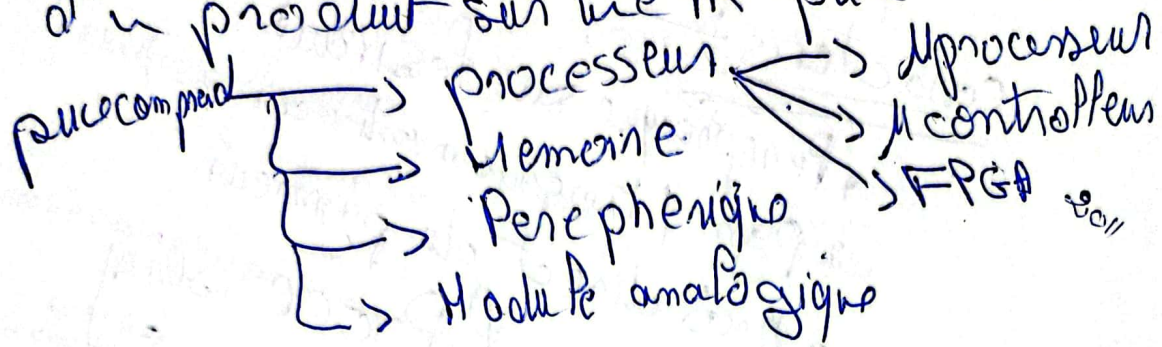 d'un produit sur une m pu
puce comprend → processeur → µprocesseur
→ µcontrolleur
→ FPGA
→ Memoire
→ Peréphérique
→ Module analogique